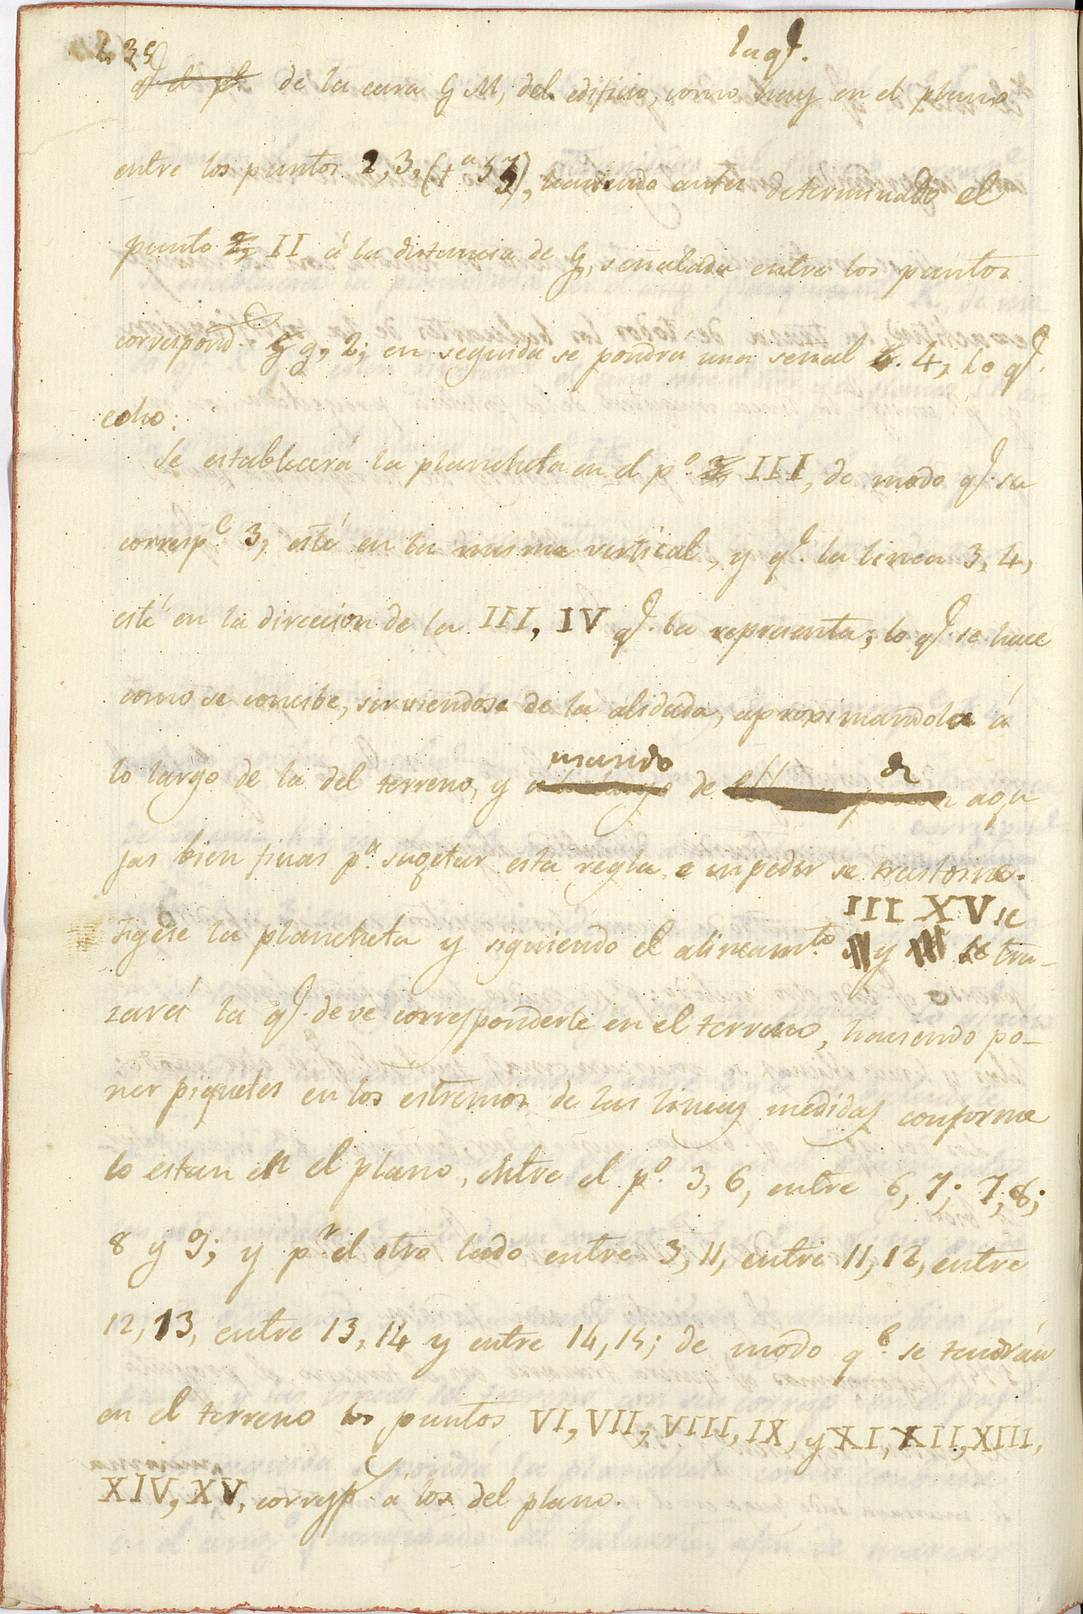 235
la qͤ.
qͤ el pͦ. de la cara G M, del edificio, como hay en el plano
entre los puntos 2, 3, (tᵃ 37), haviendo antes determinado el
punto II á la distancia de G, señalada entre los puntos
correspondᵉˢ g, 2; en seguida se pondra una señal 4, lo qͤ.
echo:
Se establecerá la plancheta en el pͦ. III, de modo qͤ. su
correspͤ 3, esté en la misma vertical, y qͤ. la linea 3, 4,
esté en la direccion de la III, IV qͤ. la representa; lo qͤ. se hace
como se concibe, sirviendose de la alidada, aproximandola á
usando de
lo largo de la del terreno, y a lo largo de agu
jas bien finas pᵃ sugetar esta regla e impedir se trastorne.
III XV se
Fijese la plancheta y siguiendo el alineamᵗᵒ y se tra-
zará la qͤ. deve corresponderle en el terreno, haciendo po-
ner piquetes en los estremos de las lineas medidas conforme
lo estan en el plano, entre el pͦ. 3, 6, entre 6, 7; 7, 8;
8 y 9; y pʳ el otro lado entre 3, 11, entre 11, 12, entre
12, 13, entre 13, 14 y entre 14, 15; de modo qͤ. se tendrán
en el terreno los puntos VI, VII, VIII, IX, y XI, XII, XIII,
XIV, XV, corresp. a los del plano.